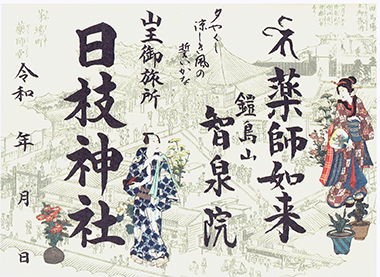 薬師如来
鎧島山
智泉院
夕やくし
涼しき風の
誓いかな
山王御旅所
日枝神社
令和 年 月 日